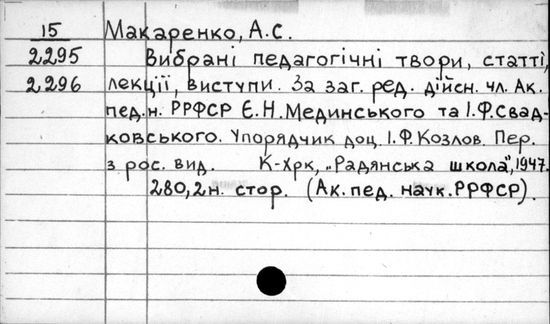 15 Макаренко, А.С.
2295 Вибрані педагогічні твори, статті,
2296 лекції, виступи. За заг. ред. дійсн. чл. Ак.
пед. н. РРФСР Є.Н.Мединського та І.Ф.Свад-
ковського. Упорядчик доц. І.Ф.Козлов. Пер.
з рос. вид. К-Хрк, „Радянська школа", 1947.
280,2н. стор. (Ак. пед. наук. РРФСР).